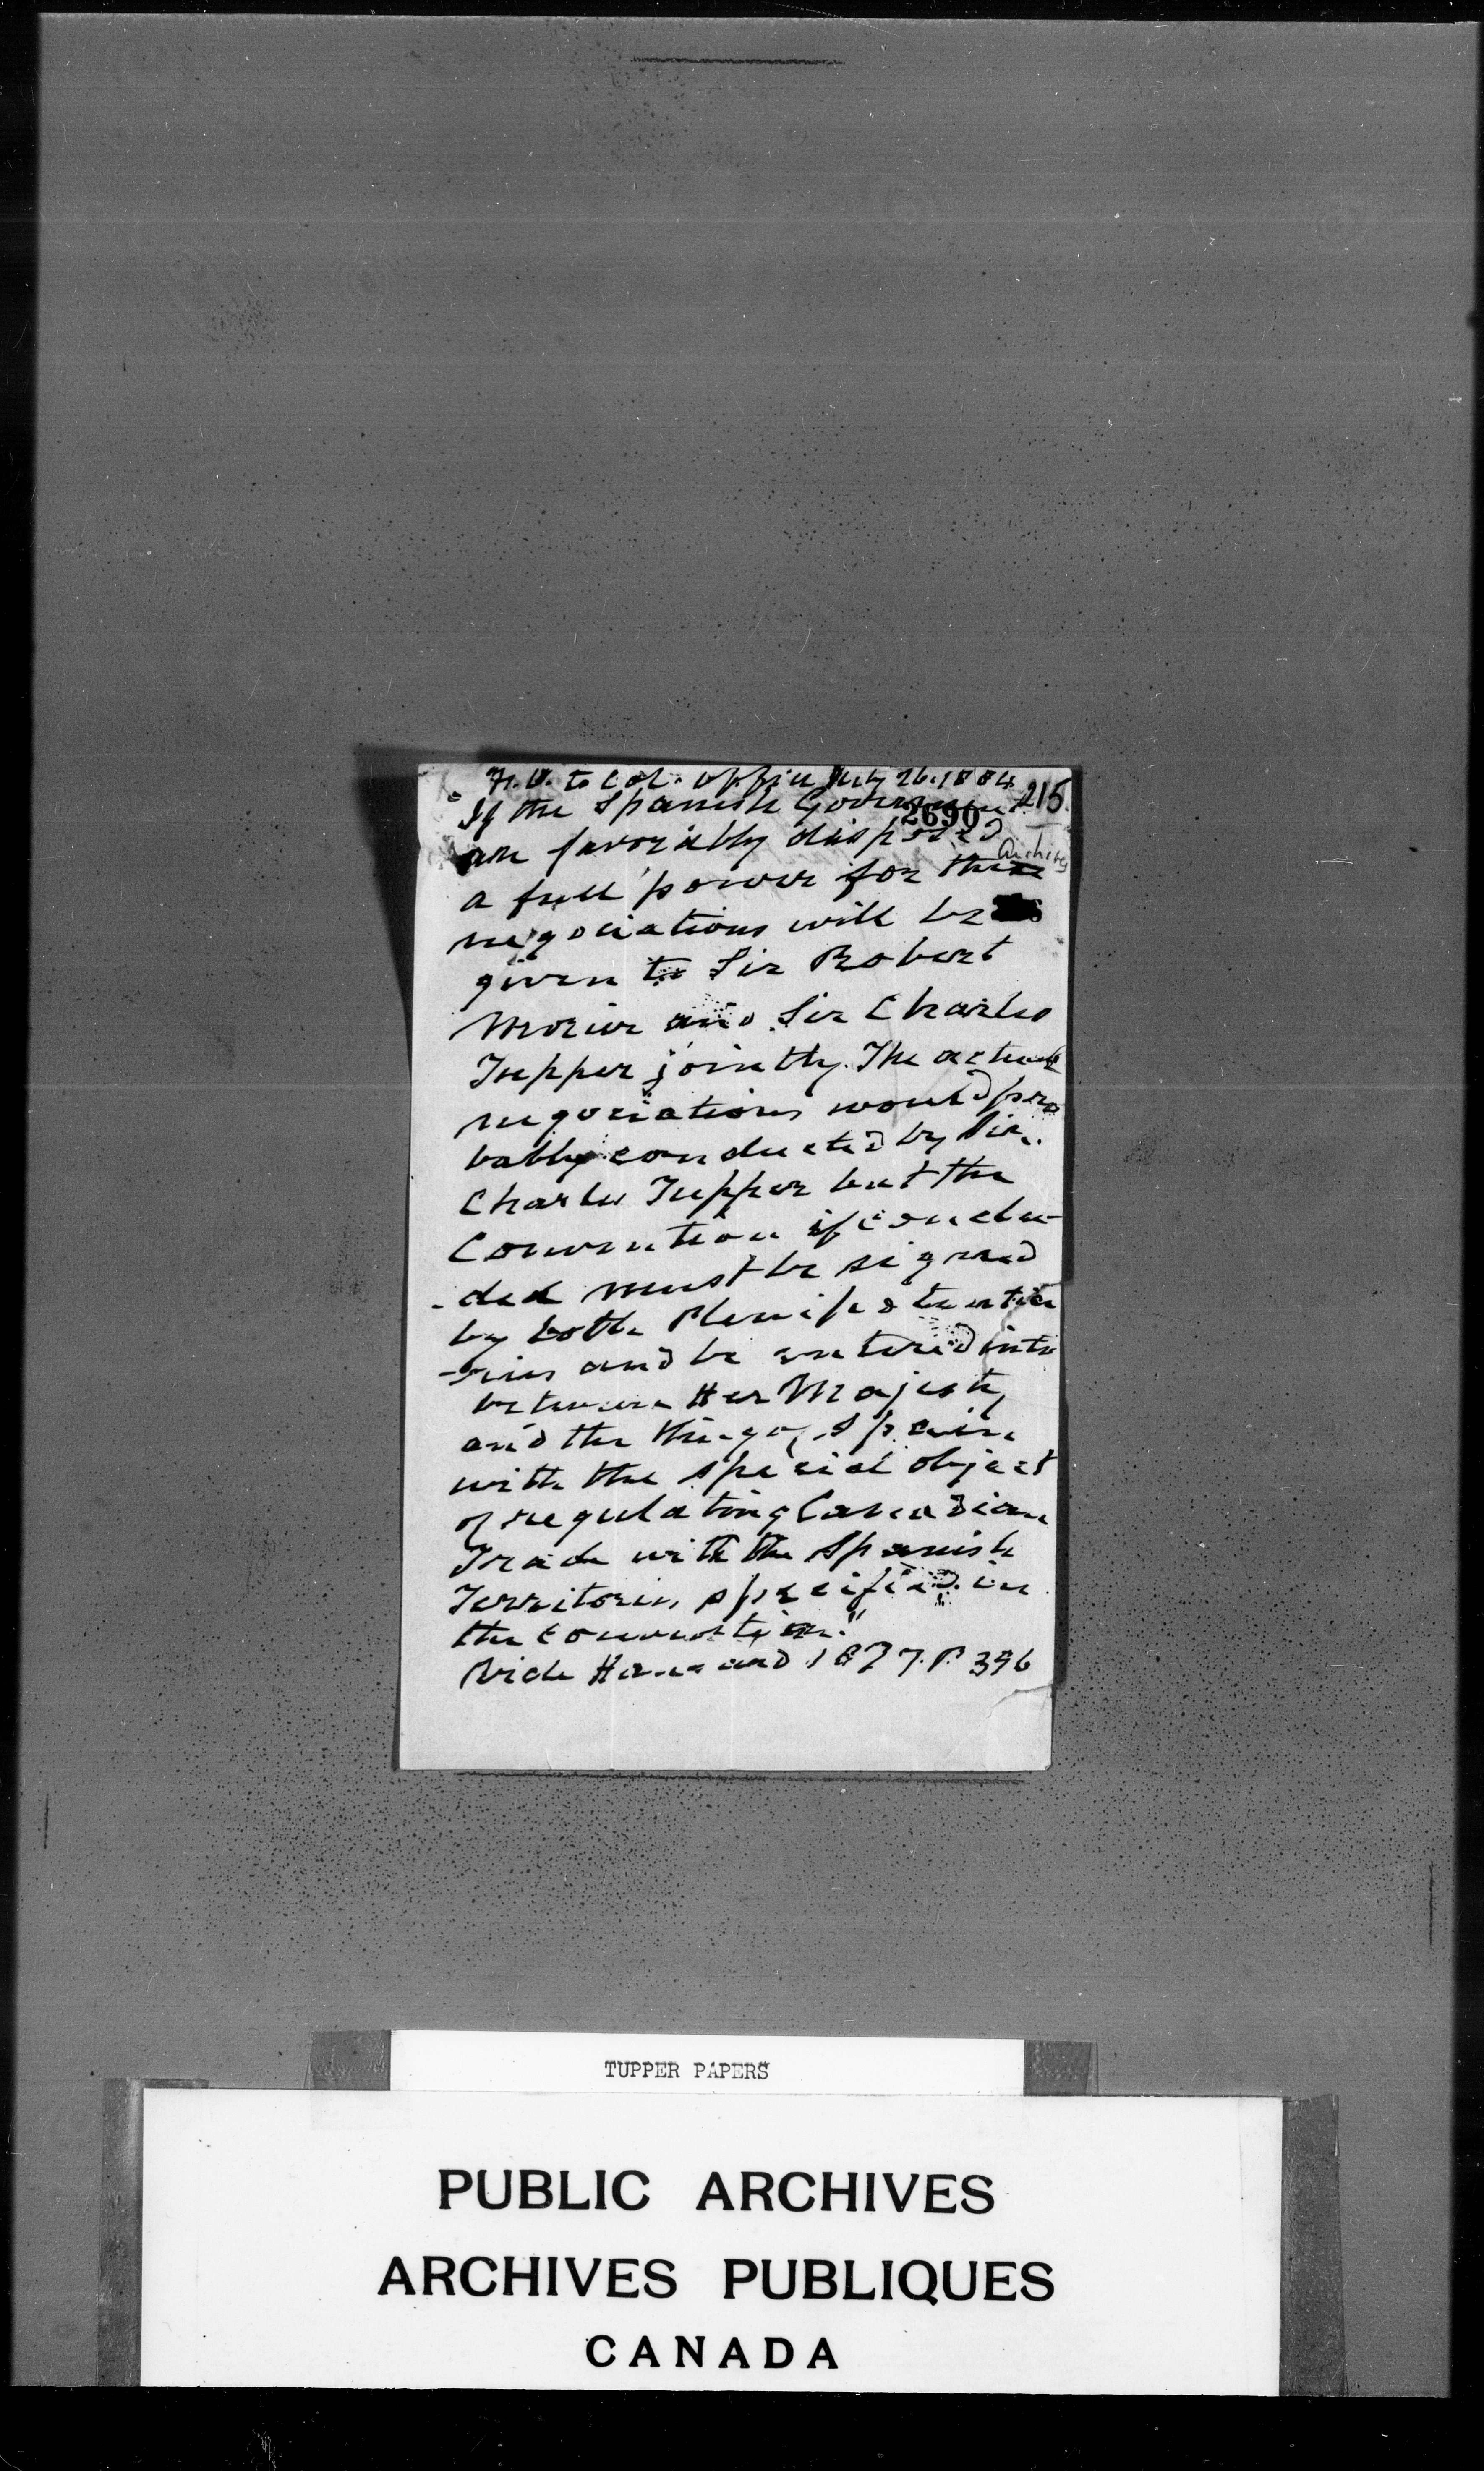 F.O. to Col. Office July 26. 1884
215.
"If the Spanish Government
2690
are favorably disposed
Archives
a full power for these
negociations will be
given to Sir Robert
Morier and Sir Charles
Tupper jointly. The actual
negociations would pro
bably conducted by Sir
Charles Tupper but the
Convention if conclu-
-ded must be signed
by both Plenipotentia
-ries and be entered into
between Her Majesty
and the King of Spain
with the special object
of regulating Canadian
Trade with the Spanish
Territories specified in
the convention."
Vide Hansard 1877. P. 396
TUPPER PAPERS
PUBLIC ARCHIVES
ARCHIVES PUBLIQUES
CANADA